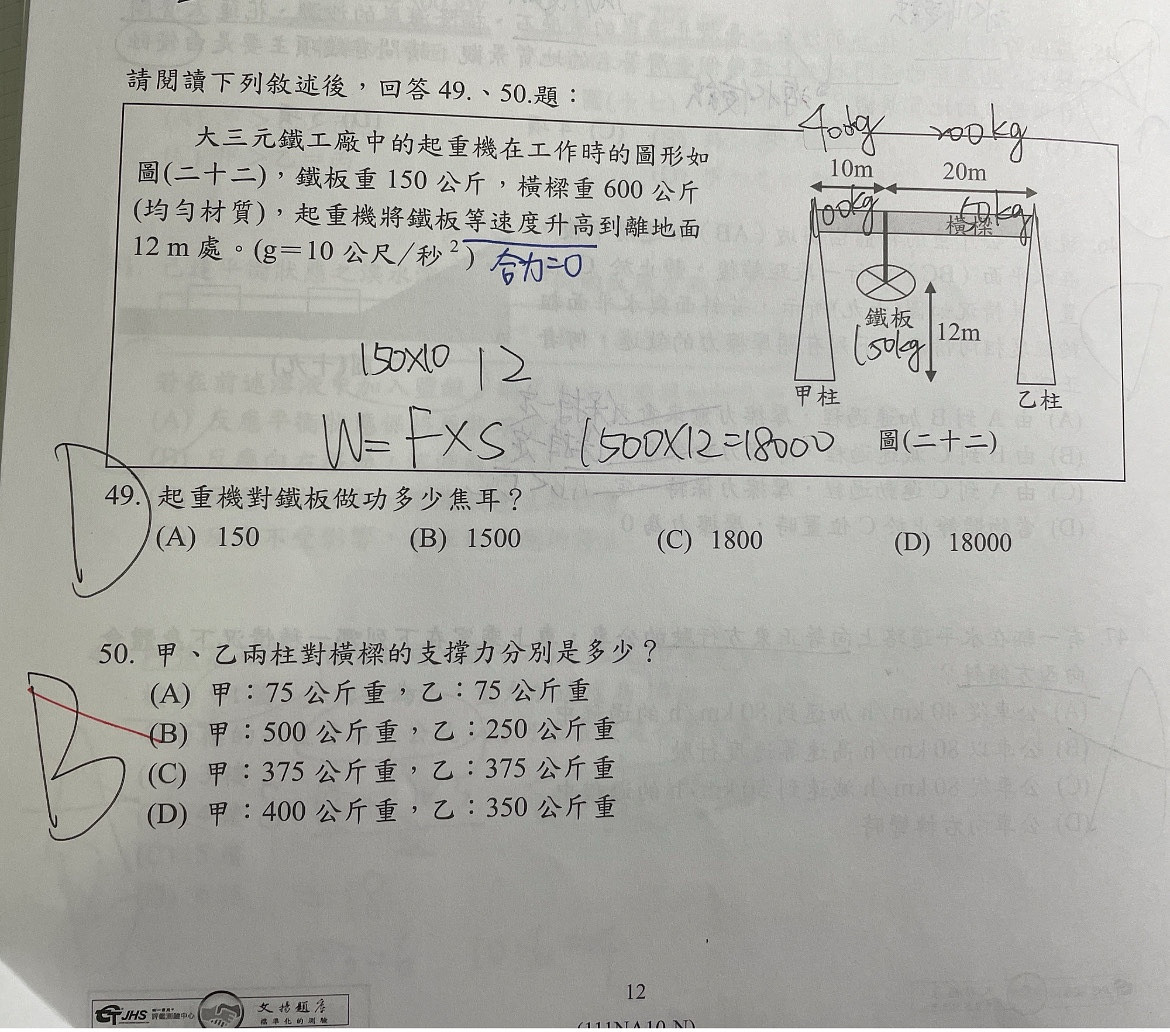 請閱讀下列敘述後，回答 49.、50.題：
大三元鐵工廠中的起重機在工作時的圖形如
圖(二十二)，鐵板重 150 公斤，橫樑重 600 公斤
(均勻材質)，起重機將鐵板等速度升高到離地面
12 m 處。(g＝10 公尺／秒²)
合力=0
400kg 200kg
10m 20m
100kg 50kg
橫樑
鐵板
150kg
12m
甲柱 乙柱
圖(二十二)
150×10 12
W=F×S 1500×12=18000
D
49. 起重機對鐵板做功多少焦耳？
(A) 150 (B) 1500 (C) 1800 (D) 18000
B
50. 甲、乙兩柱對橫樑的支撐力分別是多少？
(A) 甲：75 公斤重，乙：75 公斤重
(B) 甲：500 公斤重，乙：250 公斤重
(C) 甲：375 公斤重，乙：375 公斤重
(D) 甲：400 公斤重，乙：350 公斤重
12
JHS
標準化的測驗
(111NA10-N)